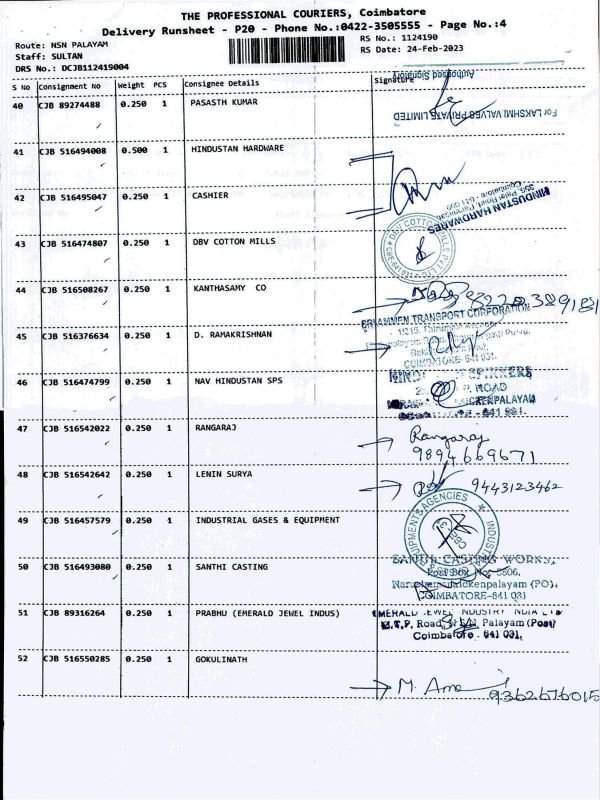 THE PROFESSIONAL COURIERS, Coimbatore
Delivery Runsheet - P20 - Phone No.:0422-3505555 - Page No.:4
Route: NSN PALAYAM
RS No.: 1124190
Staff: SULTAN
RS Date: 24-Feb-2023
DRS No.: DCJB112419004
S No Consignment No Weight PCS Consignee Details Signature
Authorised Signatory
40 CJB 89274488 0.250 1 PASASTH KUMAR
For LAKSHMI VALVES PRIVATE LIMITED
41 CJB 516494008 0.500 1 HINDUSTAN HARDWARE
42 CJB 516495047 0.250 1 CASHIER
HINDUSTAN HARDWARES
43 CJB 516474807 0.250 1 DBV COTTON MILLS
DBV COTTON MILLS PVT LTD
44 CJB 516508267 0.250 1 KANTHASAMY CO
TRANSPORT CORPORATION
45 CJB 516376634 0.250 1 D. RAMAKRISHNAN
COIMBATORE 641 031.
46 CJB 516474799 0.250 1 NAV HINDUSTAN SPS
SPINNERS
ROAD
641 031.
47 CJB 516542022 0.250 1 RANGARAJ
Rangaraj
9894669671
48 CJB 516542642 0.250 1 LENIN SURYA
9443123462
49 CJB 516457579 0.250 1 INDUSTRIAL GASES & EQUIPMENT
EQUIPMENTS AGENCIES
50 CJB 516493080 0.250 1 SANTHI CASTING
CASTING WORKS,
Post Box No.
Narasimhanaickenpalayam (PO),
COIMBATORE-641 031
51 CJB 89316264 0.250 1 PRABHU (EMERALD JEWEL INDUS)
EMERALD JEWEL INDUSTRY INDIA LTD
M.T.P. Road, N.S.N. Palayam (Post)
Coimbatore - 641 031.
52 CJB 516550285 0.250 1 GOKULINATH
9362676015